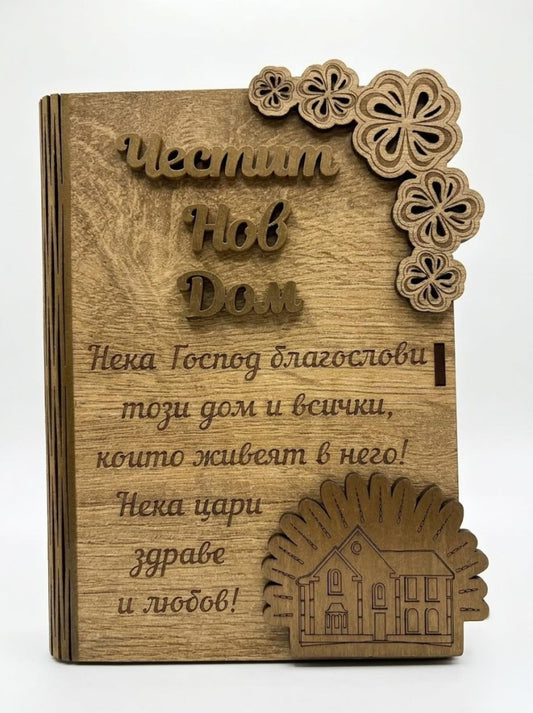 Честит
Нов
Дом
Нека Господ благослови
този дом и всички,
които живеят в него!
Нека цари
здраве
и любов!